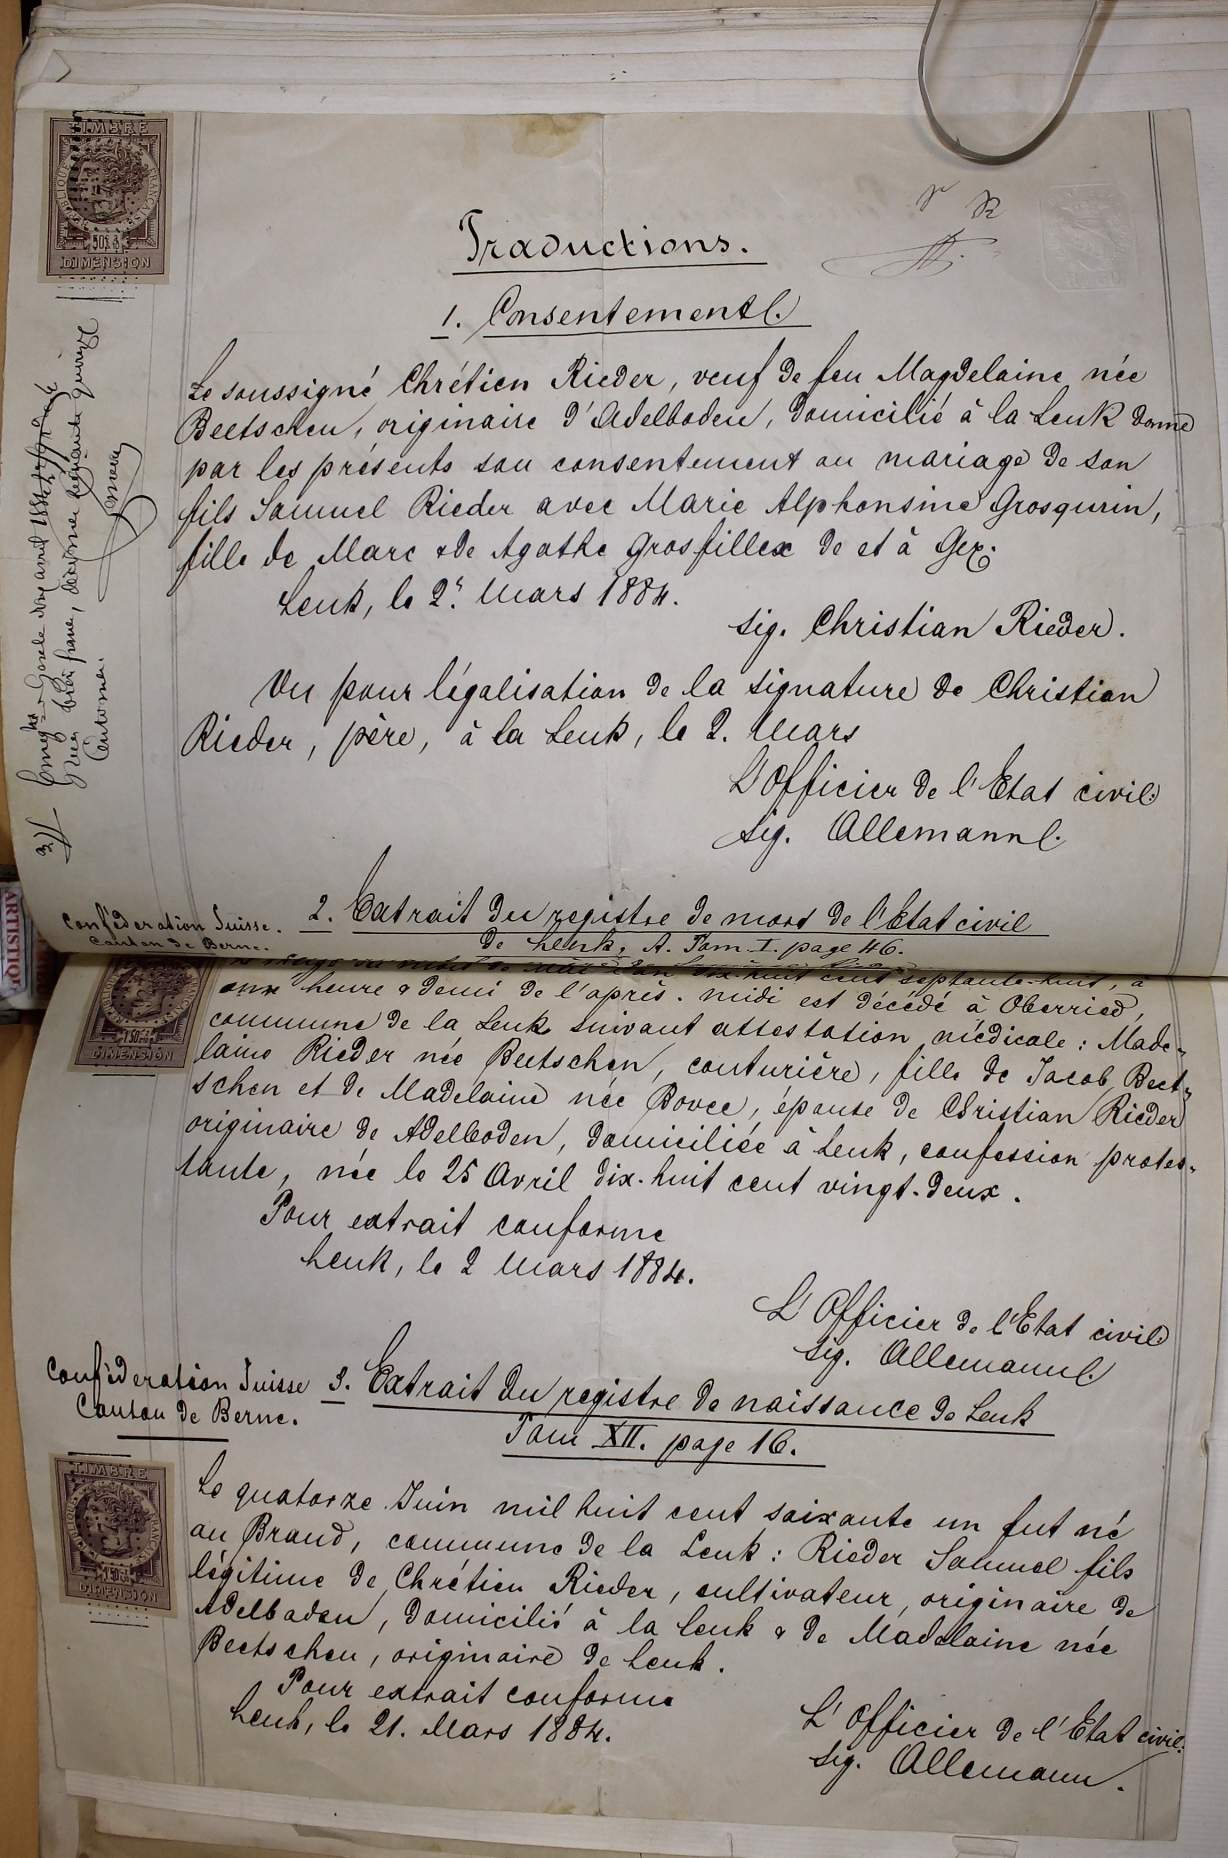 TIMBRE
RÉPUBLIQUE FRANÇAISE
DIMENSION
Traductions.
1. Consentement.
Le soussigné Chrétien Rieder, veuf de feu Magdelaine née
Beetschen, originaire d'Adelboden, domicilié à la Lenk donne
par les présents son consentement au mariage de son
fils Samuel Rieder avec Marie Alphonsine Grosgurin,
fille de Marc & de Agathe Grosfillex de et à Gex.
Lenk, le 2. Mars 1884.
sig. Christian Rieder.
Vu pour légalisation de la signature de Christian
Rieder, père, à la Lenk, le 2. Mars
L'Officier de l'Etat civil
sig. Allemann
Confédération Suisse.
Canton de Berne.
2. Extrait du registre de mort de l'Etat civil
de Lenk, A. Tom. I. page 46.
huit cent septante-huit, à
une heure & demi de l'après-midi est décédé à Oberried,
commune de la Lenk suivant attestation médicale: Made-
laine Rieder née Beetschen, couturière, fille de Jacob Beet-
schen et de Madelaine née, épouse de Christian Rieder
originaire de Adelboden, domiciliée à Lenk, confession protes-
tante, née le 25 Avril dix-huit cent vingt-deux.
Pour extrait conforme
Lenk, le 2 Mars 1884.
L'Officier de l'Etat civil
sig. Allemann
DIMENSION
Confédération Suisse
Canton de Berne.
3. Extrait du registre de naissance de Lenk
Tom XII. page 16.
TIMBRE
DIMENSION
Le quatorze Juin mil huit cent soixante un fut né
au Brand, commune de la Lenk: Rieder Samuel fils
légitime de Chrétien Rieder, cultivateur, originaire de
Adelboden, domicilié à la Lenk & de Madelaine née
Beetschen, originaire de Lenk.
Pour extrait conforme
Lenk, le 21. Mars 1884.
L'Officier de l'Etat civil.
sig. Allemann.
ARTISTIQU